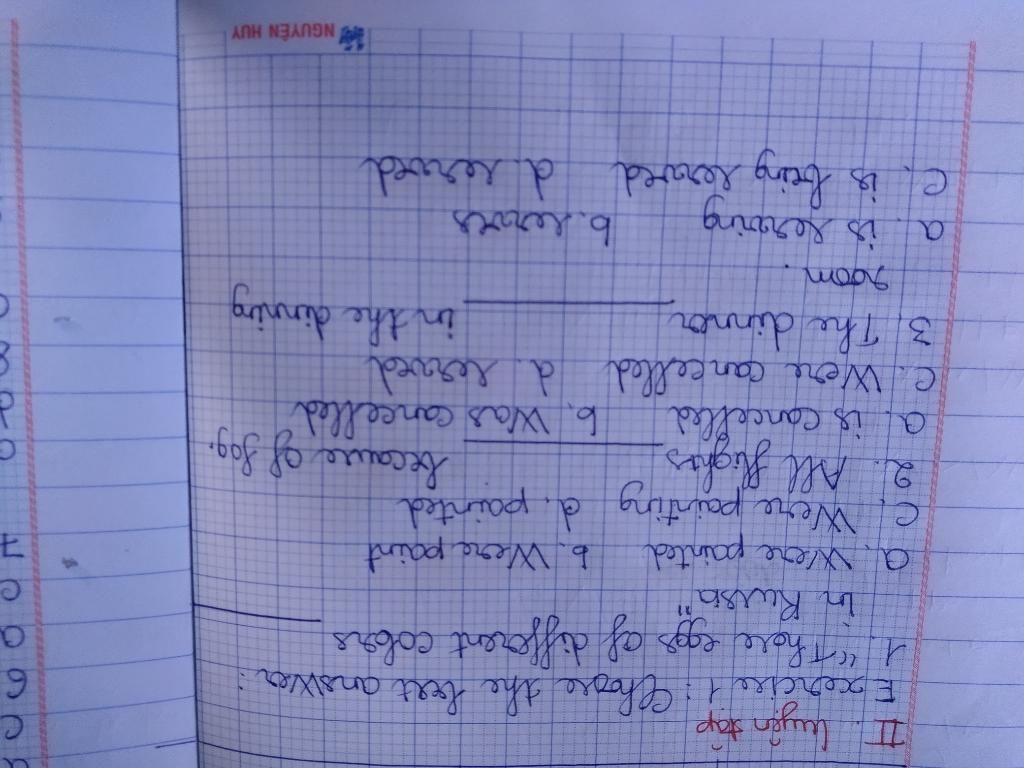 II. Luyện tập
Exercise 1: Choose the best answer:
1. "Those eggs of different colors
in Russia"
a. Were painted b. Were paint
c. Were painting d. painted
2. All flights because of fog.
a. is cancelled b. Was cancelled
c. Were cancelled d. served
3. The dinner in the dinning
room.
a. is serving b. serves
c. is being served d. served
NGUYÊN HUY